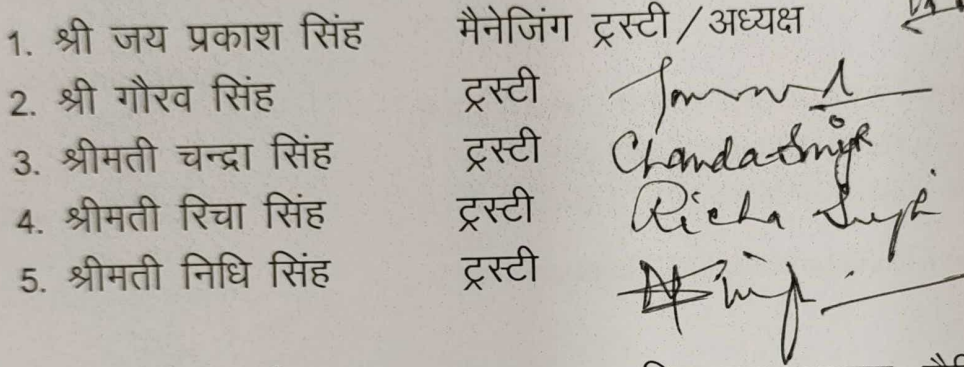 1. श्री जय प्रकाश सिंह मैनेजिंग ट्रस्टी / अध्यक्ष
2. श्री गौरव सिंह ट्रस्टी
3. श्रीमती चन्द्रा सिंह ट्रस्टी Chanda Singh
4. श्रीमती रिचा सिंह ट्रस्टी Richa Singh
5. श्रीमती निधि सिंह ट्रस्टी